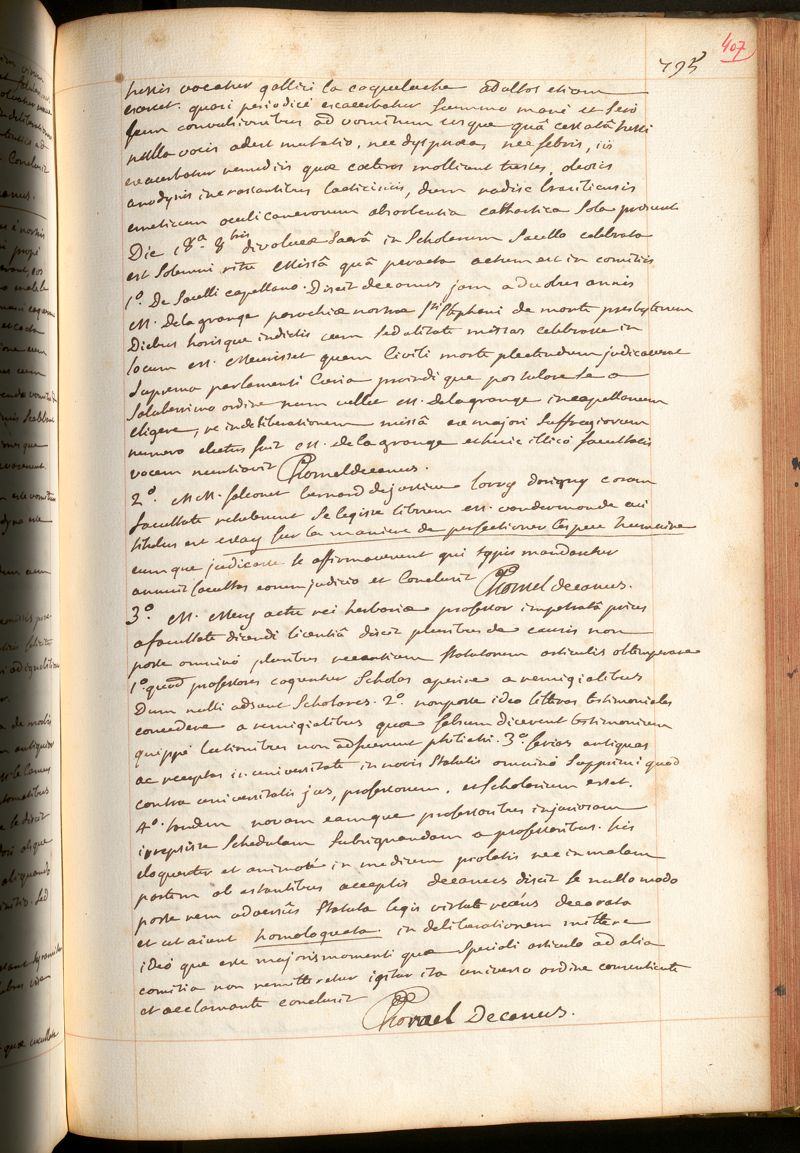 407
795
tussis vocatur gallici la coqueluche adultos etiam
exercet. quasi periodicè exacerbatur summo manè et serò
cum convulsionibus ad vomitum usque quâ cessatâ tussi
nulla vocis adest mutatio, nec dyspnoea, nec febris, iis
exacerbatur remediis quae caeteros molliunt tusses, oleosis
anodynis incrassantibus lacticiniis, dum radix brasiliensis
emeticum oculi cancrorum absorbentia cathartica sola prosunt
Die 18a. 8bris divo lucae sacrâ in Scholarum Sacello celebrata
est solemni ritu Missâ quâ peracta actum est in comitiis
1°. De Sacelli capellano. Dixit decanus jam a duobus annis
M. Delagrange parochiae nostrae Sti Stephani de monte presbyterum
Diebus horisque indictis cum sedulitate missas celebrare in
locum M. Meurisset quem Civili morte plectendum judicaverat
Suprema parlamenti Curia proindique postulare se a
Saluberrimo ordine num vellet M. delagrange in capellanum
eligere, re in deliberationem missâ ex majori Suffragiorum
numero electus fuit M. delagrange et hunc illicò facultatis
vocem nuntiavit Chomel decanus.
2°. MM. falconet bernard dejussieu Lorry dorigny coram
facultate retulerunt se legisse librum M. vandermonde cui
titulus est essay sur la maniere de perfectionner l'espece humaine
eumque judicare se affirmaverunt qui typis mandaretur
annuit facultas eorum judicio et Conclusit Chomel decanus.
3°. M. Mery actu rei herbariae professor impetratâ prius
a facultate dicendi licentiâ dixit pluribus de causis non
posse omninò pluribus recentium statutorum articulis obtemperare
1°. quod professores cogerentur Scholas aperire a remigialibus
Dum nulli adsunt Scholares. 2°. non posse ideo litteras testimoniales
concedere a remigialibus quae falsum dicerent testimonium
quippe lectionibus non adfuerunt philiatri. 3°. ferias antiquas
ac receptas in universitate in novis statutis omninò supprimi quod
contra universitatis jus, professorum, et scholarium esset.
4°. tandem novam eamque professoribus injuriosam
irrepsisse Schedulam subsignandam a professoribus. his
eloquenter et animosè in medium prolatis nec in malam
partem ab astantibus acceptis decanus dixit se nullo modo
posse rem adversùs statuta legis virtute recens decorata
et ut aiunt homologata in deliberationem mittere
ideò que esse majoris momenti quae speciali articulo ad alia
comitia non remitteretur igitur ita universo ordine consentiente
et acclamante conclusit
Chomel Decanus.